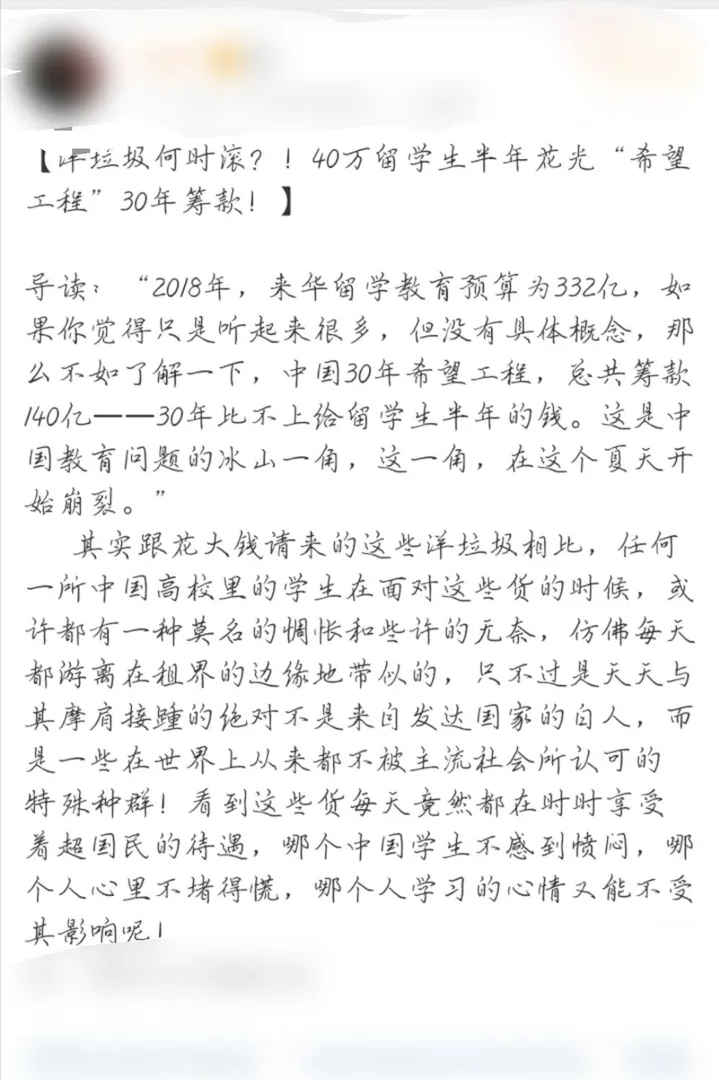 【洋垃圾何时滚？！40万留学生半年花光“希望
工程”30年筹款！】
导读：“2018年，来华留学教育预算为332亿，如
果你觉得只是听起来很多，但没有具体概念，那
么不如了解一下，中国30年希望工程，总共筹款
140亿——30年比不上给留学生半年的钱。这是中
国教育问题的冰山一角，这一角，在这个夏天开
始崩裂。”
其实跟花大钱请来的这些洋垃圾相比，任何
一所中国高校里的学生在面对这些货的时候，或
许都有一种莫名的惆怅和些许的无奈，仿佛每天
都游离在租界的边缘地带似的，只不过是天天与
其摩肩接踵的绝对不是来自发达国家的白人，而
是一些在世界上从来都不被主流社会所认可的
特殊种群！看到这些货每天竟然都在时时享受
着超国民的待遇，哪个中国学生不感到愤闷，哪
个人心里不堵得慌，哪个人学习的心情又能不受
其影响呢！